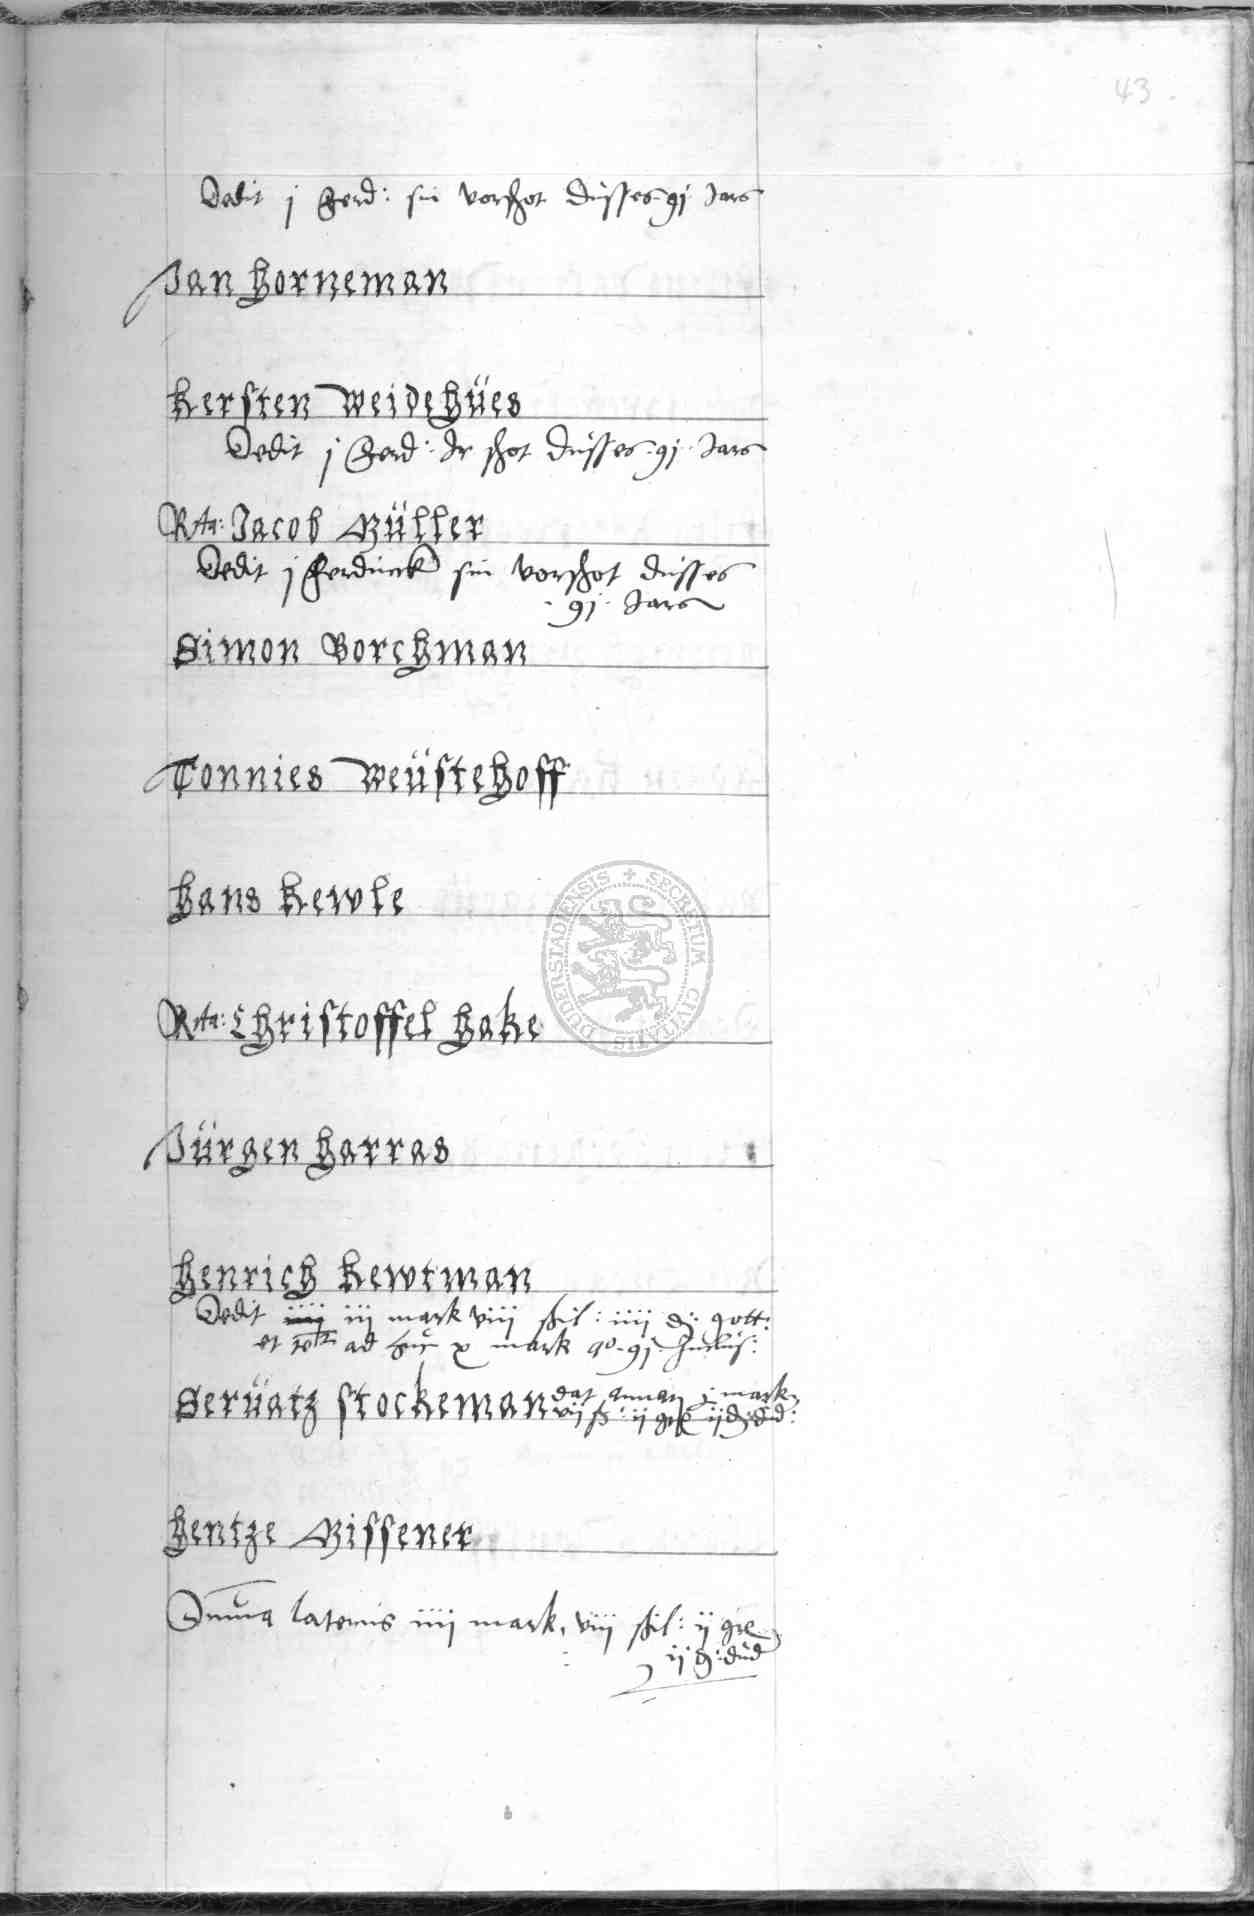 43
Dedit j Ferd: sin vorschot dusses 91 Jars
Jan Horneman
Kersten Weidehües
Dedit j Ferd: Ir schot dusses 91 Jars
Jacob Müller
Dedit j Ferdinck sin vorschot dusses
91 Jars
Simon Borchman
Tonnies Weüstehoff
Hans Kewle
Christoffel Hake
Jürgen Harras
Henrich Kewtman
Dedit iij mark viij schil: iiij d: gott:
et ad x mark 91
Serüatz Stockeman dat j mark
vij ß: ij ij d: dud:
Hentze Missener
Summa lateris iiij mark, viij schil: ij gre
ij d: dud
SECRETUM CIVITATIS DUDERSTADIENSIS